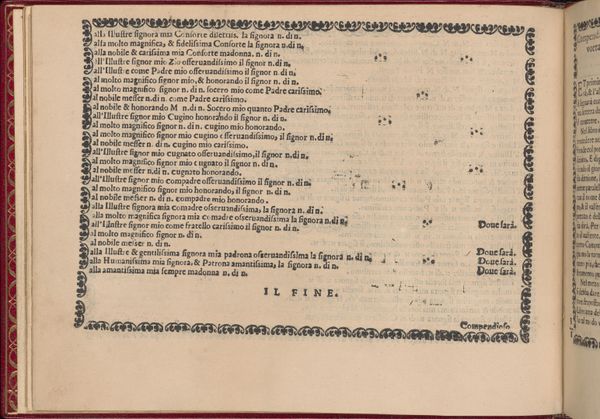 alla Illustre signora mia Consorte dilettiss. la signora n. di n.
alla molto magnifica, & fidelissima Consorte la signora n.di n.
alla nobile & carissima mia Consorte madonna. n. di n.
all'Illustre signor mio Zio osseruandissimo il signor n. di n.
all'Illustre come Padre mio osseruandissimo il signor n. di n.
al molto magnifico signor mio, & honorando il signor n. di n.
al molto magnifico signor n. di n. socero mio come Padre carissimo.
al nobile messer n.di n. come Padre carissimo.
al nobile & honorando M n.di n. Socero mio quanto Padre carissimo.
all'Illustre signor mio Cugino honorando il signor n. di n.
al molto magnifico signor n. di n. cugino mio honorando.
al molto magnifico signor mio cugino osseruandissimo, il signor n. di n.
al nobile messer n. di n. cugino mio carissimo.
all'Illustre signor mio cugnato osseruandissimo, il signor n. di n.
al molto magnifico signor mio cugnato il signor n. di n.
al nobile messer n. di n. cugnato honorando.
all'Illustre signor mio compadre osseruandissimo il signor n. di n.
al molto magnifico signor mio honorando, il signor n. di n.
al nobile messer n. di n. compadre mio honorando.
alla Illustre signora mia comadre osseruandissima, la signora n. di n.
alla molto magnifica signora mia comadre osseruandissima la signora n. di n.
all'Illustre signor mio come fratello carissimo il signor n. di n. Doue sarà.
al molto magnifico signor n. di n.
al nobile messer n. di n.
alla Illustre & gentilissima signora mia padrona osseruandissima la signora n. di n. Doue sarà.
alla Humanissima mia signora, & Patrona amantissima, la signora n. di n. Doue sarà.
alla amantissima mia sempre madonna n. di n. Doue sarà.
IL FINE.
Compendioso